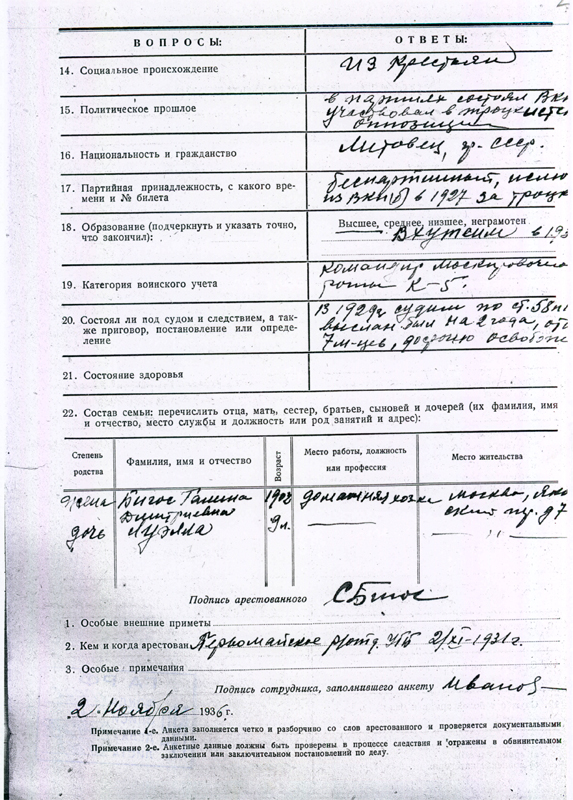 ВОПРОСЫ: ОТВЕТЫ:
14. Социальное происхождение из крестьян
15. Политическое прошлое в партиях состоял ВК
участвовал в троцкистс
оппозиции
16. Национальность и гражданство Литовец, гр. СССР.
17. Партийная принадлежность, с какого вре-
мени и № билета
беспартийный, исклю
из ВКП(б) в 1927 за троцк
18. Образование (подчеркнуть и указать точно,
что закончил):
Высшее, среднее, низшее, неграмотен
Вхутеин в 193
19. Категория воинского учета
командир маскировочной
роты К-5.
20. Состоял ли под судом и следствием, а так-
же приговор, постановление или опреде-
ление
В 1929 г судим по ст. 58
выслан был на 2 года,
7 м-цев, досрочно освобож
21. Состояние здоровья
22. Состав семьи: перечислить отца, мать, сестер, братьев, сыновей и дочерей (их фамилия, имя
и отчество, место службы и должность или род занятий и адрес):
Степень
родства
Фамилия, имя и отчество
Возраст
Место работы, должность
или профессия
Место жительства
жена Бигос Галина
Дмитриевна
домашняя хозяйка Москва,
ский пр. д 7
дочь Луэлла 9 л. — — ,,
Подпись арестованного СБигос
1. Особые внешние приметы
2. Кем и когда арестован Первомайское УГБ 2/XI-193 г.
3. Особые примечания
Подпись сотрудника, заполнившего анкету Иванов
2 Ноября 1936 г.
Примечание 1-е. Анкета заполняется четко и разборчиво со слов арестованного и проверяется документальными
данными.
Примечание 2-е. Анкетные данные должны быть проверены в процессе следствия и отражены в обвинительном
заключении или заключительном постановлении по делу.